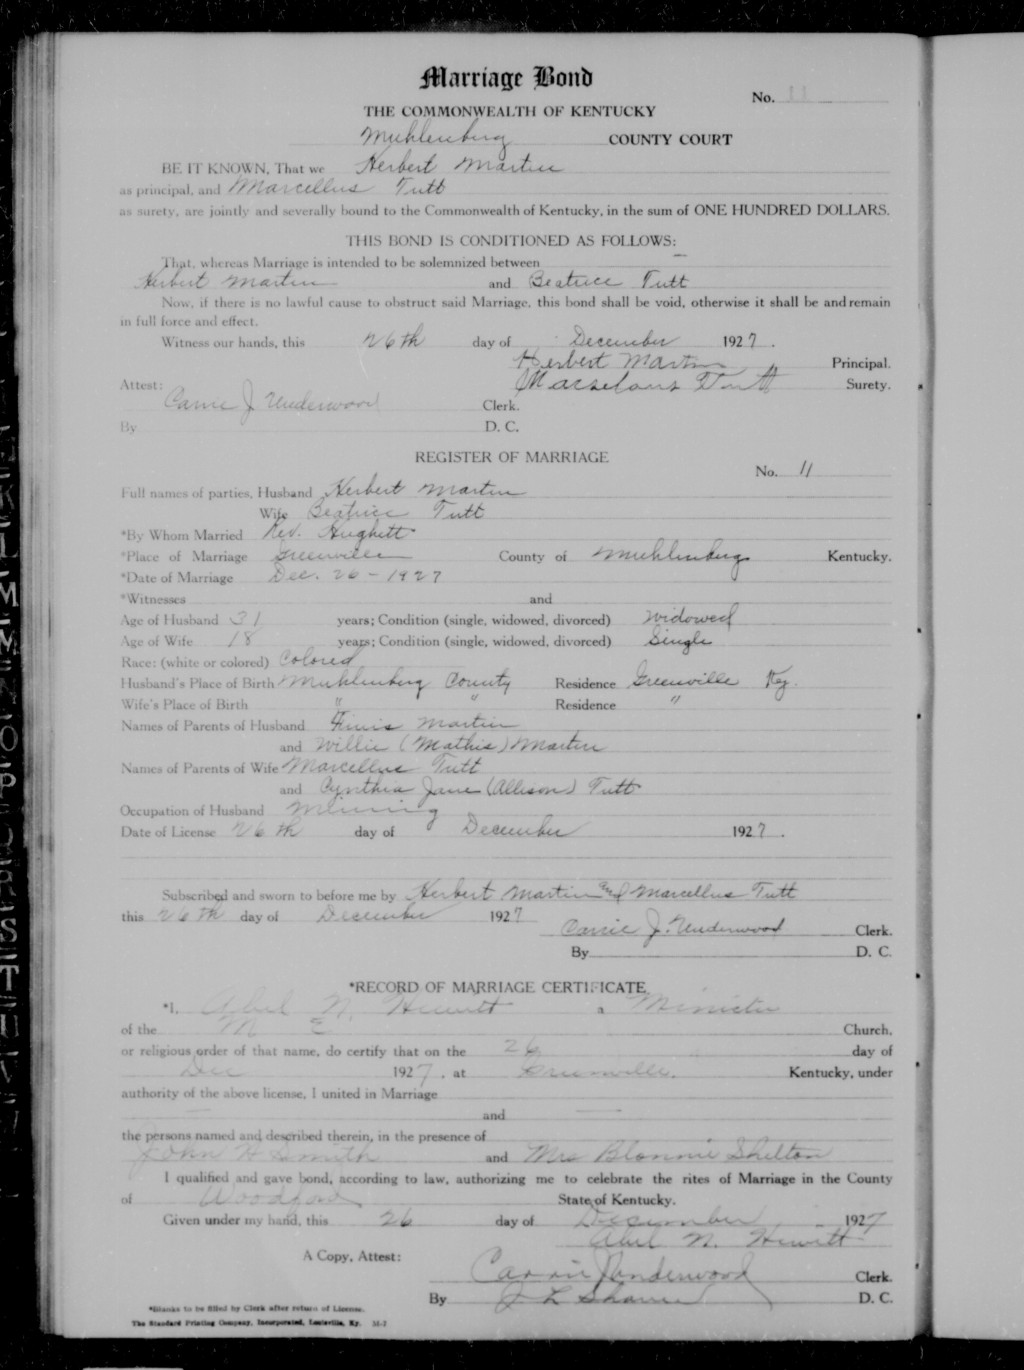 Marriage Bond
No. 11
THE COMMONWEALTH OF KENTUCKY
Muhlenberg COUNTY COURT
BE IT KNOWN, That we Herbert Martin
as principal, and Marcellus Tutt
as surety, are jointly and severally bound to the Commonwealth of Kentucky, in the sum of ONE HUNDRED DOLLARS.
THIS BOND IS CONDITIONED AS FOLLOWS:
That, whereas Marriage is intended to be solemnized between
Herbert Martin and Beatrice Tutt
Now, if there is no lawful cause to obstruct said Marriage, this bond shall be void, otherwise it shall be and remain
in full force and effect.
Witness our hands, this 26th day of December 1927.
Herbert Martin Principal.
Attest: Surety.
Carrie J. Underwood Clerk.
By D. C.
REGISTER OF MARRIAGE
No. 11
Full names of parties, Husband Herbert Martin
Wife Beatrice Tutt
*By Whom Married Rev. Hughett
*Place of Marriage Greenville County of Muhlenberg Kentucky.
*Date of Marriage Dec. 26 - 1927
*Witnesses and
Age of Husband 31 years; Condition (single, widowed, divorced) Widowed
Age of Wife 18 years; Condition (single, widowed, divorced) Single
Race: (white or colored) Colored
Husband's Place of Birth Muhlenberg County Residence Greenville Ky.
Wife's Place of Birth " " Residence "
Names of Parents of Husband Finis Martin
and Willie (Mathis) Martin
Names of Parents of Wife Marcellus Tutt
and Cynthia Jane (Allison) Tutt
Occupation of Husband Mining
Date of License 26th day of December 1927.
Subscribed and sworn to before me by Herbert Martin and Marcellus Tutt
this 26th day of December 1927
Carrie J. Underwood Clerk.
By D. C.
*RECORD OF MARRIAGE CERTIFICATE
*I, Abel N. Hewitt a Minister
of the M E Church,
or religious order of that name, do certify that on the 26 day of
Dec 1927, at Greenville, Kentucky, under
authority of the above license, I united in Marriage
and
the persons named and described therein, in the presence of
John H Smith and Mrs Blonnie Shelton
I qualified and gave bond, according to law, authorizing me to celebrate the rites of Marriage in the County
of Woodford State of Kentucky.
Given under my hand, this 26 day of December 1927
Abel N. Hewitt
A Copy, Attest:
Carrie J Underwood Clerk.
By J L D. C.
*Blanks to be filled by Clerk after return of License.
The Standard Printing Company, Incorporated, Louisville, Ky.